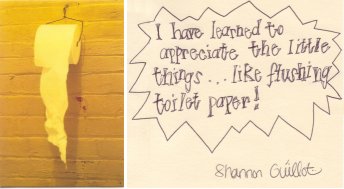 I have learned to
appreciate the little
things...like flushing
toilet paper!
Shannon Guillot